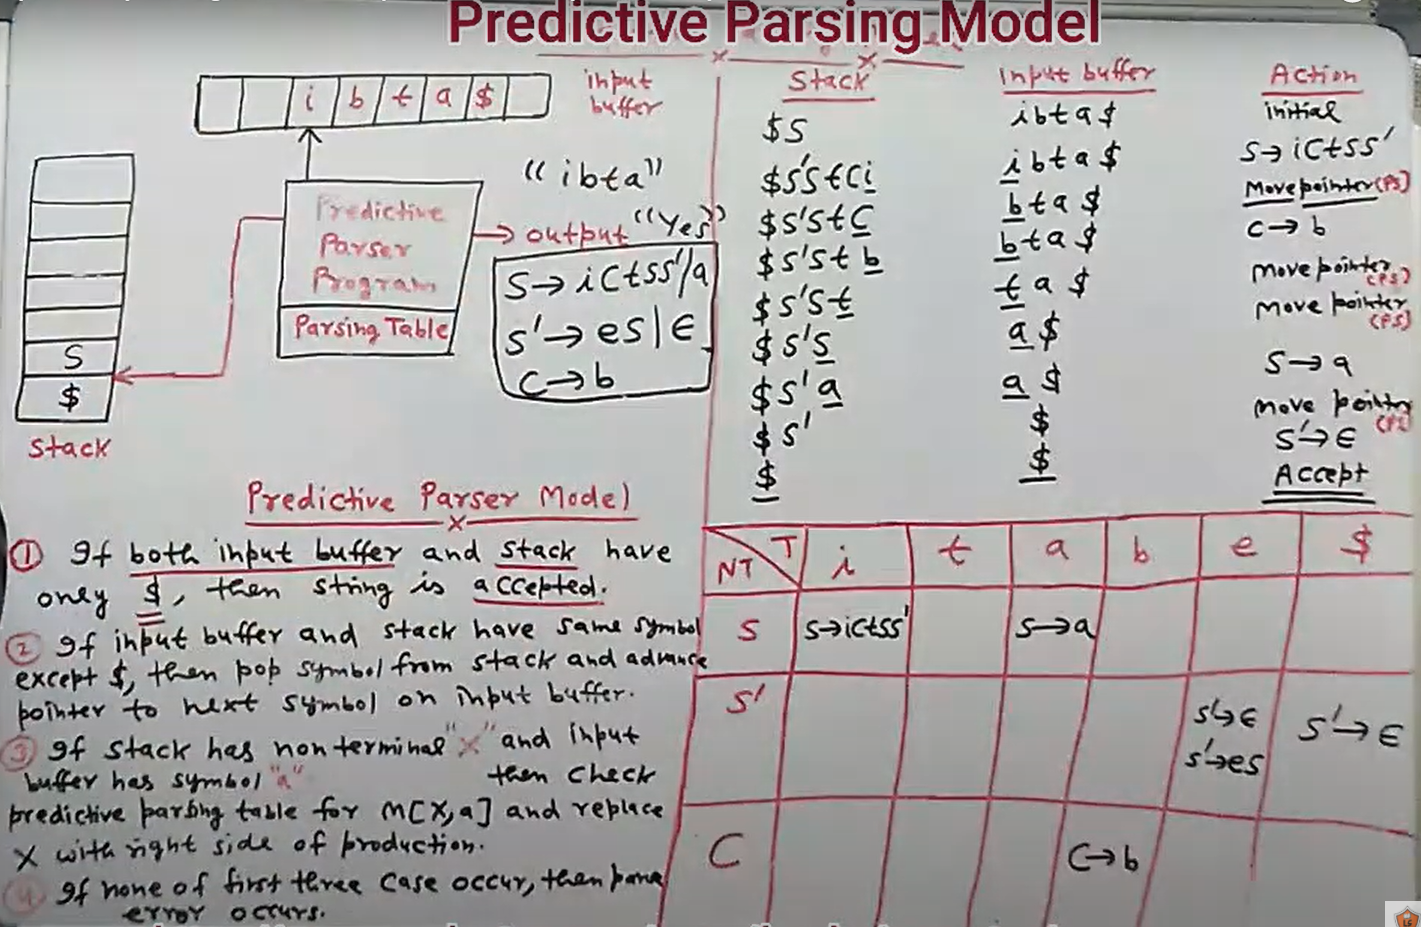 Predictive Parsing Model
i b t a $
input
buffer
"ibta"
Predictive
Parser
Program
Parsing Table
output "Yes"
S→iCtSS'/a
S'→eS|ϵ
C→b
S
$
Stack
Stack Input buffer Action
$S ibta$ initial
$S'StCi ibta$ S→iCtSS'
$S'StC bta$ Move pointer(PS)
$S'Stb bta$ C→b
$S'St ta$ move pointer (PS)
$S'S a$ move pointer (PS)
$S'a a$ S→a
$S' $ move pointer
$ $ S'→ϵ
Accept
Predictive Parser Model
① If both input buffer and stack have
only $, then string is accepted.
② If input buffer and stack have same symbol
except $, then pop symbol from stack and advance
pointer to next symbol on input buffer.
③ If stack has nonterminal "X" and input
buffer has symbol "a" then check
predictive parsing table for M[X,a] and replace
X with right side of production.
④ If none of first three case occur, then
error occurs.
NT T i t a b e $
S S→iCtSS' S→a
S' S'→ϵ S'→ϵ
S'→eS
C C→b